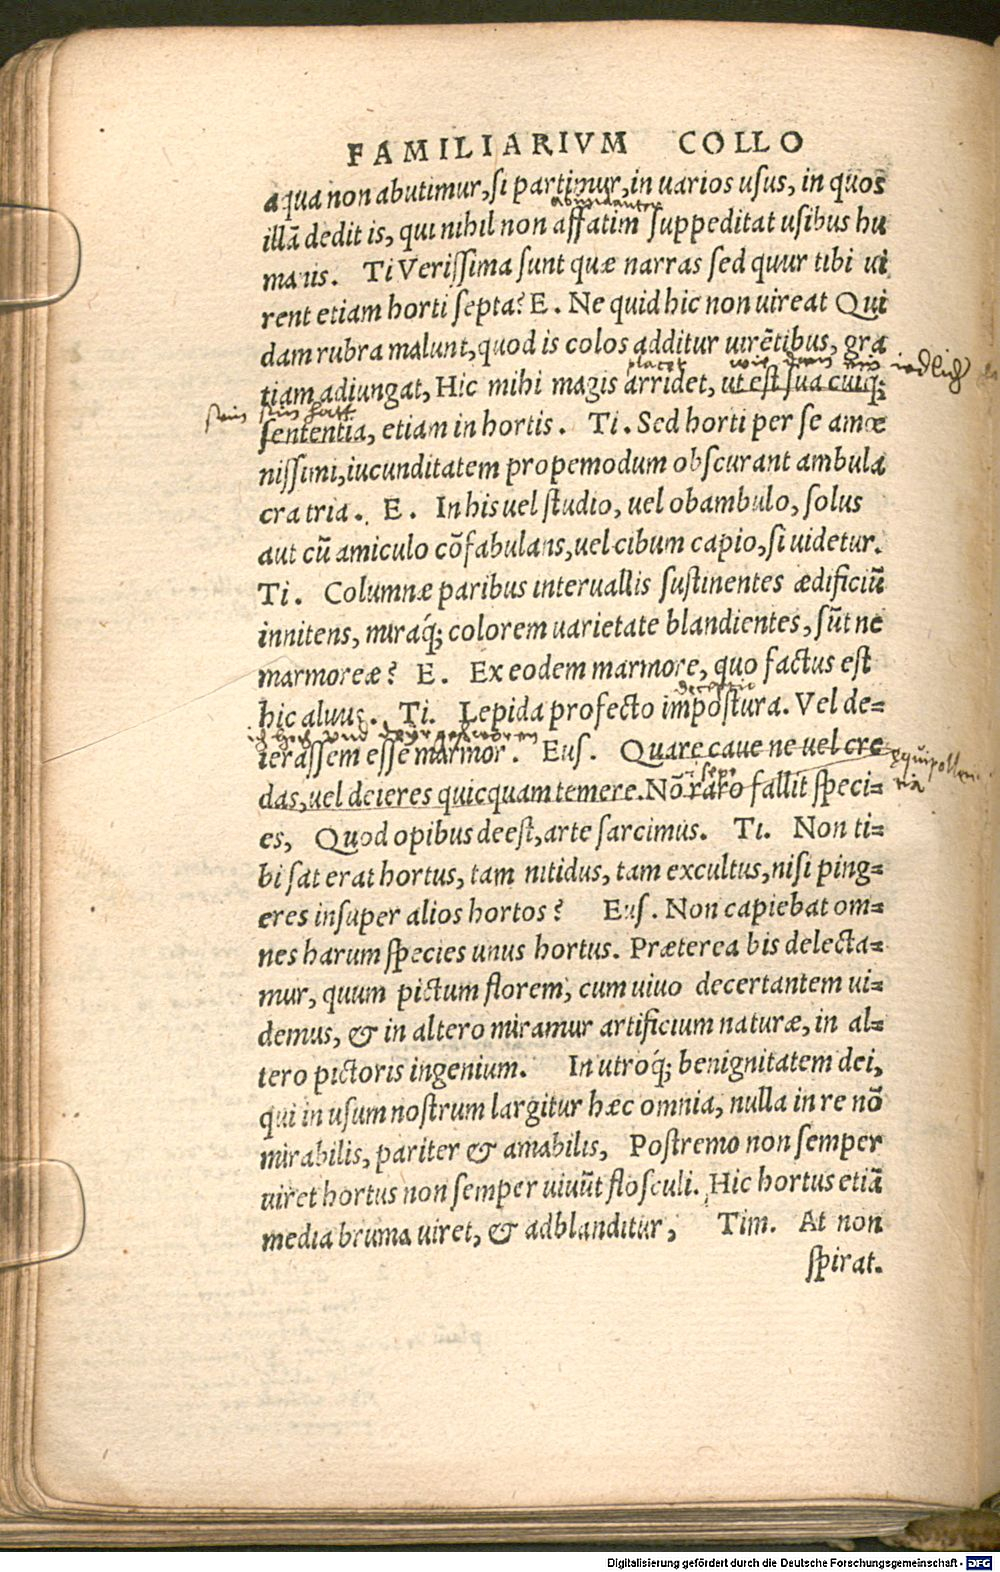 FAMILIARIVM COLLO
aqua non abutimur, si partimur, in uarios usus, in quos
abundanter
illã dedit is, qui nihil non affatim suppeditat usibus hu
manis. Ti Verissima sunt quæ narras sed quur tibi ui
rent etiam horti septa? E. Ne quid hic non uireat Qui
dam rubra malunt, quod is colos additur uirẽtibus, gra
placet
iedlich
tiam adiungat, Hic mihi magis arridet, ut est sua cuiq;
sein sin hatt
sententia, etiam in hortis. Ti. Sed horti per se amœ
nissimi, iucunditatem propemodum obscurant ambula
cra tria. E. In his uel studio, uel obambulo, solus
aut cũ amiculo cõfabulans, uel cibum capio, si uidetur.
Ti. Columnæ paribus interuallis sustinentes ædificiũ
innitens, miraq́; colorem uarietate blandientes, sũt ne
marmoreæ? E. Ex eodem marmore, quo factus est
deceptio
hic aluus. Ti. Lepida profecto impostura. Vel de=
ich hett geschworen
ierassem esse marmor. Eus. Quare caue ne uel cre
equipollen
tia
sepe
das, uel deieres quicquam temere. Nõ raro fallit speci=
es, Quod opibus deest, arte sarcimus. Ti. Non ti=
bi sat erat hortus, tam nitidus, tam excultus, nisi ping=
eres insuper alios hortos? Eus. Non capiebat om=
nes harum species unus hortus. Præterea bis delecta=
mur, quum pictum florem, cum uiuo decertantem ui=
demus, & in altero miramur artificium naturæ, in al=
tero pictoris ingenium. In utroq́; benignitatem dei,
qui in usum nostrum largitur hæc omnia, nulla in re nõ
mirabilis, pariter & amabilis, Postremo non semper
uiret hortus non semper uiuũt flosculi. Hic hortus etiã
media bruma uiret, & adblanditur, Tim. At non
spirat.
Digitalisierung gefördert durch die Deutsche Forschungsgemeinschaft - DFG